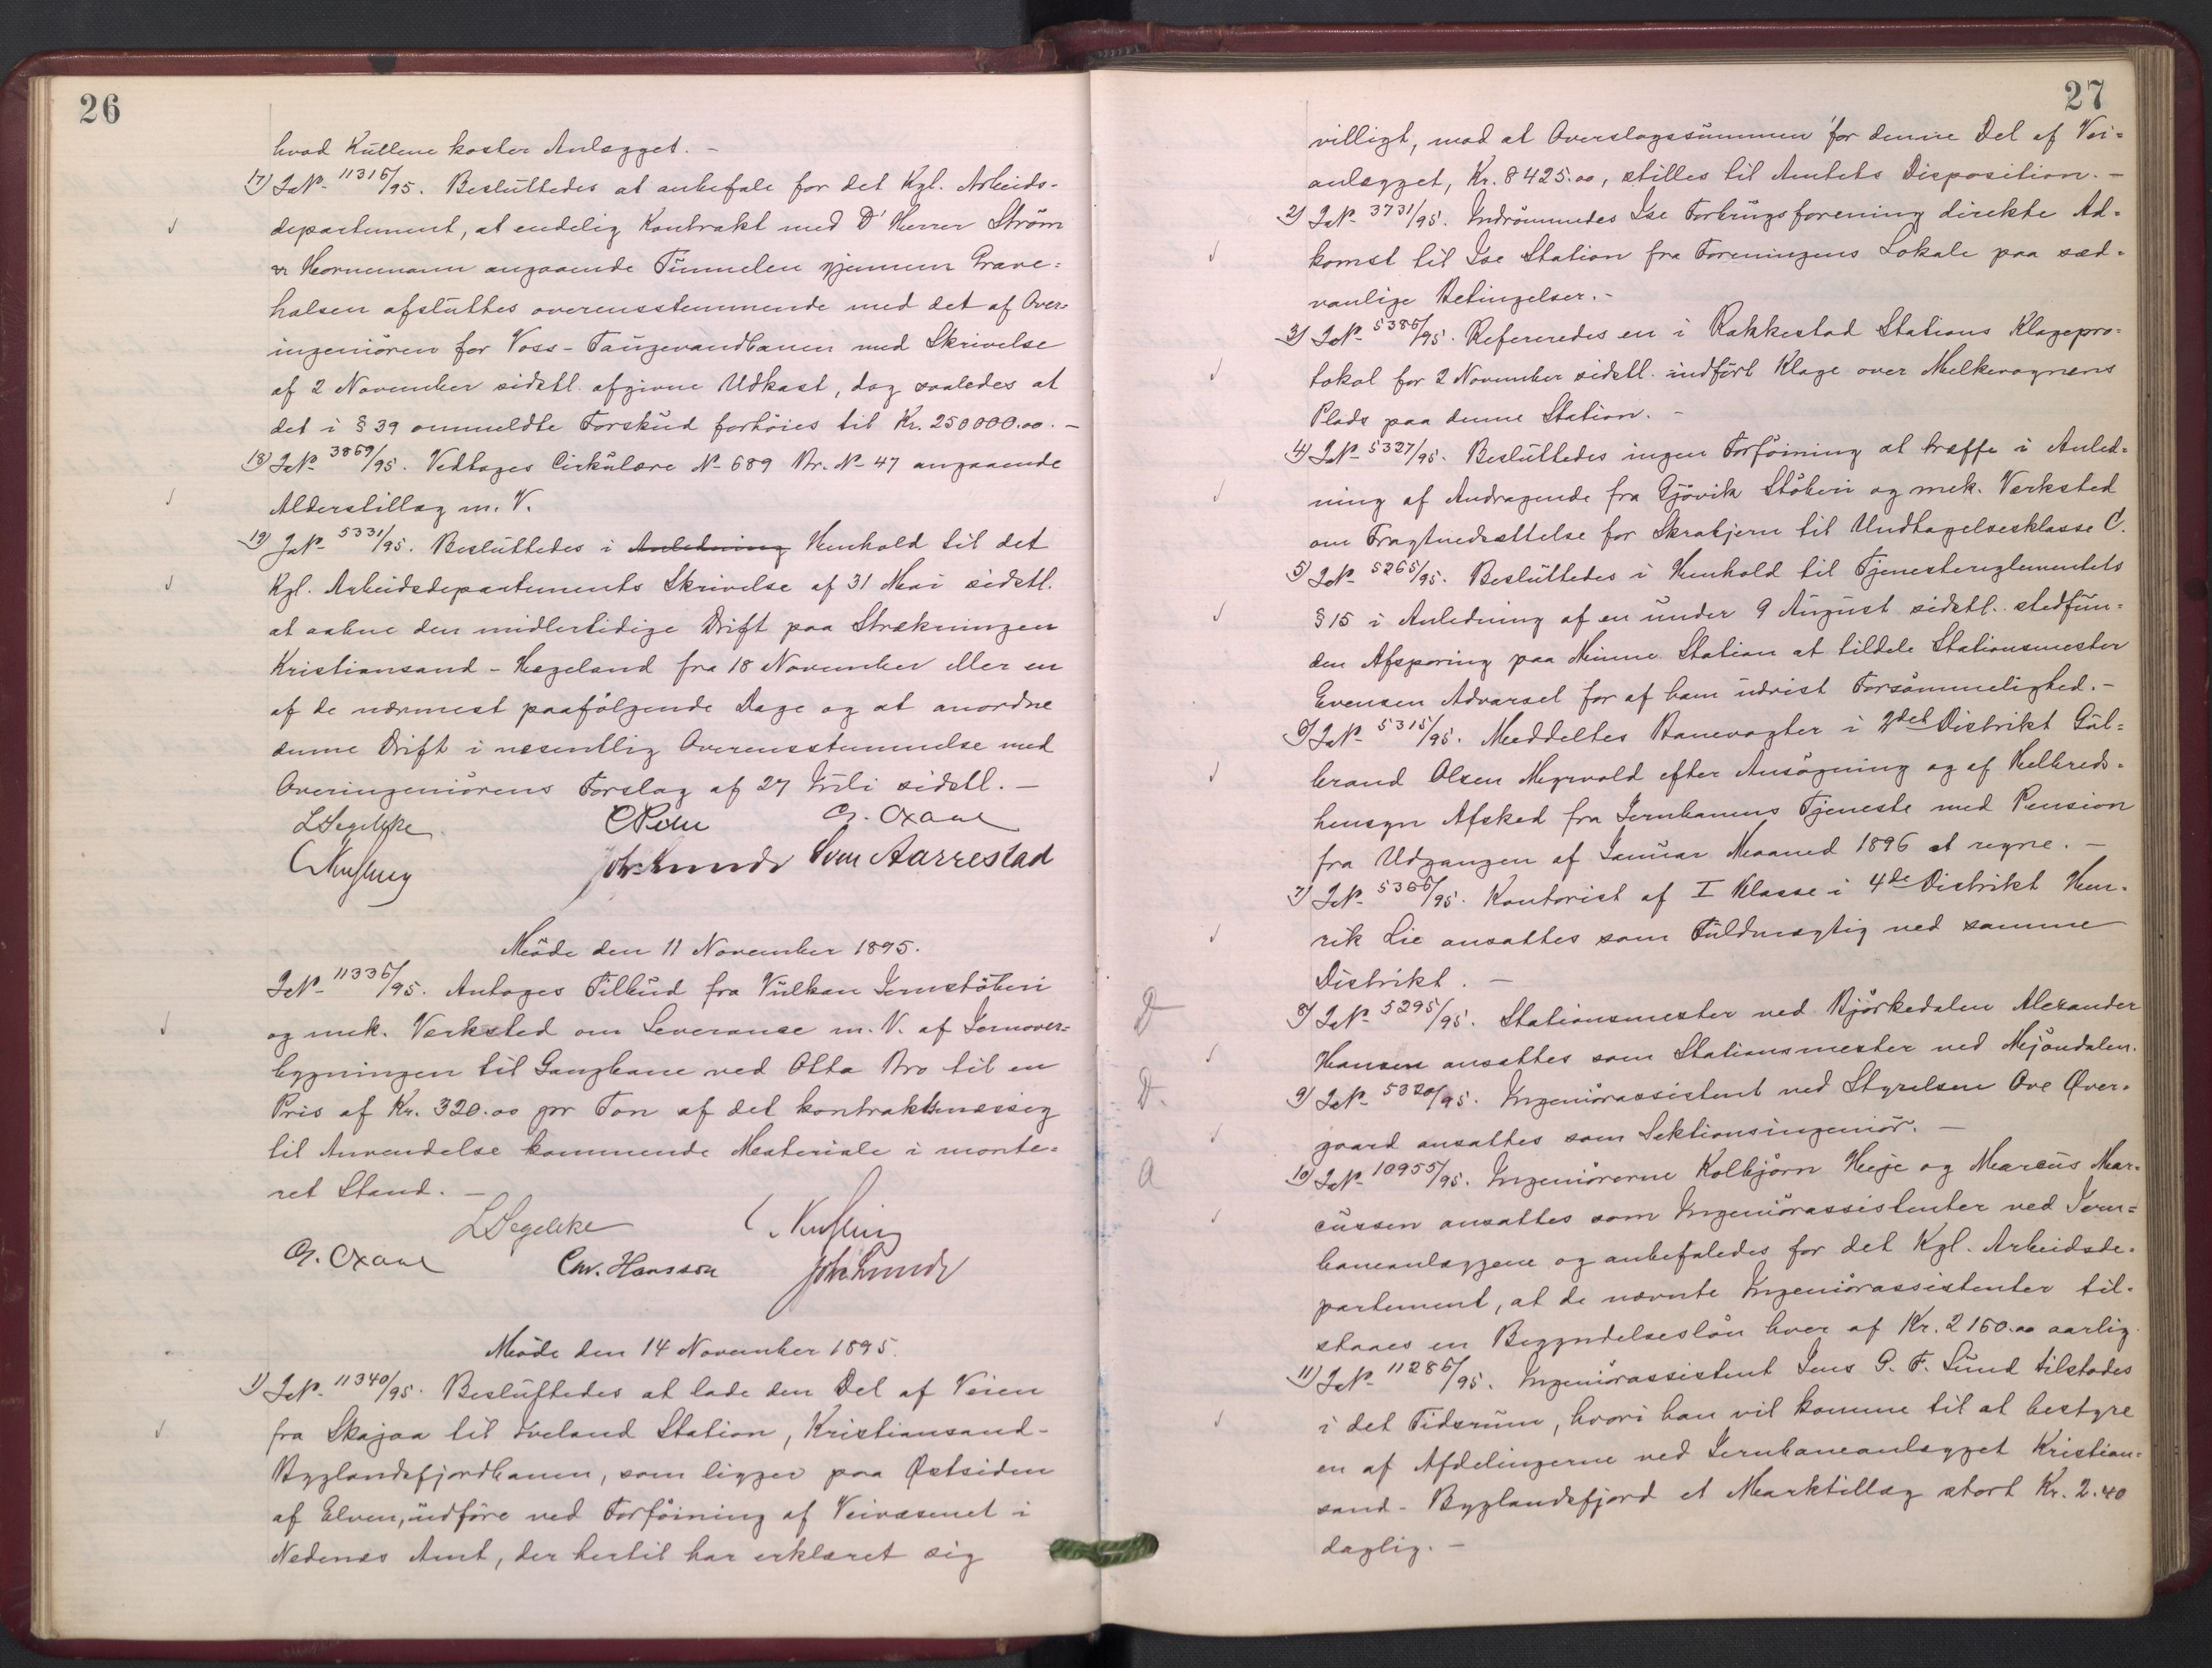 26
hvad Kullene koster Anlægget. -
17) J.N. 11316/95. Besluttedes at anbefale for det Kgl. Arbeids-
departement, at endelig Kontrakt med D'Herrer Strøm
& Hornemann angaaende Tunnelen gjennem Grave=
halsen afsluttes overensstemmende med det af Over-
ingeniören for Voss-Taugevandbanen med Skrivelse
af 2 November sidstl. afgivne Udkast, dog saaledes at
det i § 39 ommeldte Forskud forhöies til Kr. 250000.00. -
18) J.N. 3869/95. Vedtoges Cirkulære N. 689 Br. N. 47 angaaende
Alderstillæg m. V.
19) J.N. 5331/95. Besluttedes i Anledning Henhold til det
Kgl. Arbeidsdepartements Skrivelse af 31 Mai sidstl.
at aabne den midlertidige Drift paa Strækningen
Kristiansand - Hægeland fra 18 November eller en
af de nærmest paafölgende Dage og at anordne
denne Drift i væsentlig Overensstemmelse med
Overingeniörens Forslag af 27 Juli sidstl. -
L Segelcke C Pihl G. Oxaal
Joh. Lunde Sven Aarrestad
Möde den 11 November 1895.
J.N. 11336/95. Antoges Tilbud fra Vulkan Jernstöberi
og mek. Verksted om Leverance m. V. af Jernover=
bygningen til Gangbane ved Otta Bro til en
Pris af Kr. 320.00 pr Ton af det kontraktmæssig
til Anvendelse kommende Materiale i monte=
ret Stand. -
L Segelcke
G. Oxaal Chr. Hansson Joh Lunde
Möde den 14 November 1895.
1) J.N. 11340/95. Besluttedes at lade den Del af Veien
fra Skajaa til Iveland Station, Kristiansand-
Byglandsfjordbanen, som ligger paa Østsiden
af Elven, udföre ved Forföining af Veivæsenet i
Nedenæs Amt, der hertil har erklæret sig
27
villigt, mod at Overslagssummen for denne Del af Vei=
anlægget, Kr. 8425.00, stilles til Amtets Disposition. -
2) J.N. 3731/95. Indrömmedes Ise Forbrugsforening direkte Ad=
komst til Ise Station fra Foreningens Lokale paa sæd=
vanlige Betingelser. -
3) J.N. 5386/95. Refereredes en i Rakkestad Stations Klagepro=
tokol for 2 November sidstl. indfört Klage over Melkevognens
Plads paa denne Station. -
4) J.N. 5327/95. Besluttedes ingen Forföining at træffe i Anled=
ning af Andragende fra Gjövik Stöberi og mek. Verksted
om Fragtnedsættelse for Skrabjern til Undtagelsesklasse C.
5) J.N. 5265/95. Besluttedes i Henhold til Tjenestereglementets
§ 15 i Anledning af en under 9 August sidstl. stedfun=
den Afsporing paa Minne Station at tildele Stationsmester
Evensen Advarsel for af ham udvist Forsömmelighed. -
6) J.N. 5315/95. Meddeltes Banevogter i 2det Distrikt Gul=
brand Olsen Myrvold efter Ansögning og af Helbreds=
hensyn Afsked fra Jernbanens Tjeneste med Pension
fra Udgangen af Januar Maaned 1896 at regne. -
7) J.N. 5366/95. Kontorist af I Klasse i 4de Distrikt Hen=
rik Lie ansattes som Fuldmægtig ved samme
Distrikt. -
D 8) J.N. 5295/95. Stationsmester ved Björkedalen Alexander
Hansen ansattes som Stationsmester ved Mjöndalen.
D. 9) J.N. 5320/95. Ingeniörassistent ved Styrelsen Ove Øver=
gaard ansattes som Sektionsingeniör. -
A 10) J.N. 10955/95. Ingeniörerne Kolbjörn Heje og Marcus Mar=
cussen ansattes som Ingeniörassistenter ved Jern=
baneanlæggene og anbefaledes for det Kgl. Arbeidsde=
partement, at de nævnte Ingeniörassistenter til=
staaes en Begyndelseslön hver af Kr. 2160.00 aarlig.
11) J.N. 11286/95. Ingeniörassistent Jens G. F. Lund tilstodes
i det Tidsrum, hvori han vil komme til at bestyre
en af Afdelingerne ved Jernbaneanlægget Kristian=
sand - Byglandsfjord et Marktillæg stort Kr. 2.40
daglig. -